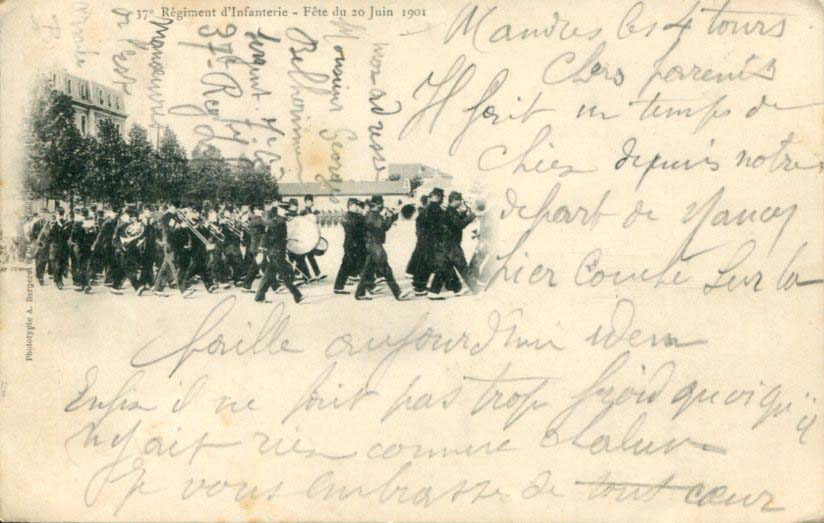 37e Régiment d'Infanterie - Fête du 20 Juin 1901
Mandres les 4 tours
Chers parents
Il fait un temps de
chien depuis notre
départ de Nancy
hier Couché Sur la
paille aujourd'hui idem
Enfin il ne fait pas trop froid quoiqu'il
n'y ait rien comme chaleur
Je vous embrasse de tout cœur
mon adresse
Monsieur Georges
Sergent
37e Reg
Manœuvres
de l'Est
Phototypie A. Bergeret